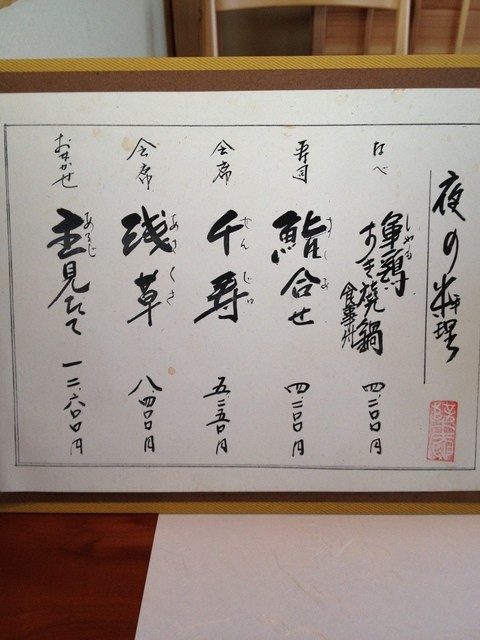 夜の料理
なべ
軍鶏
しゃも
すき焼鍋
食事付
四、二〇〇円
寿司
鮨合せ
すしあ
四、二〇〇円
会席
千寿
せんじゅ
五、二五〇円
会席
浅草
あさくさ
八、四〇〇円
おまかせ
主見たて
あるじ
一二、六〇〇円